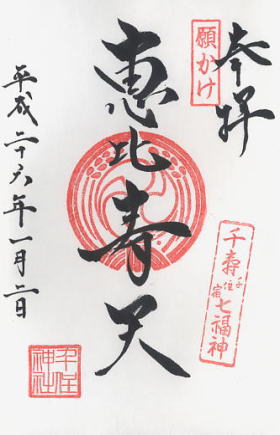 奉拝
願かけ
恵比寿天
千寿七福神
千住宿
平成二十六年一月二日
千住神社